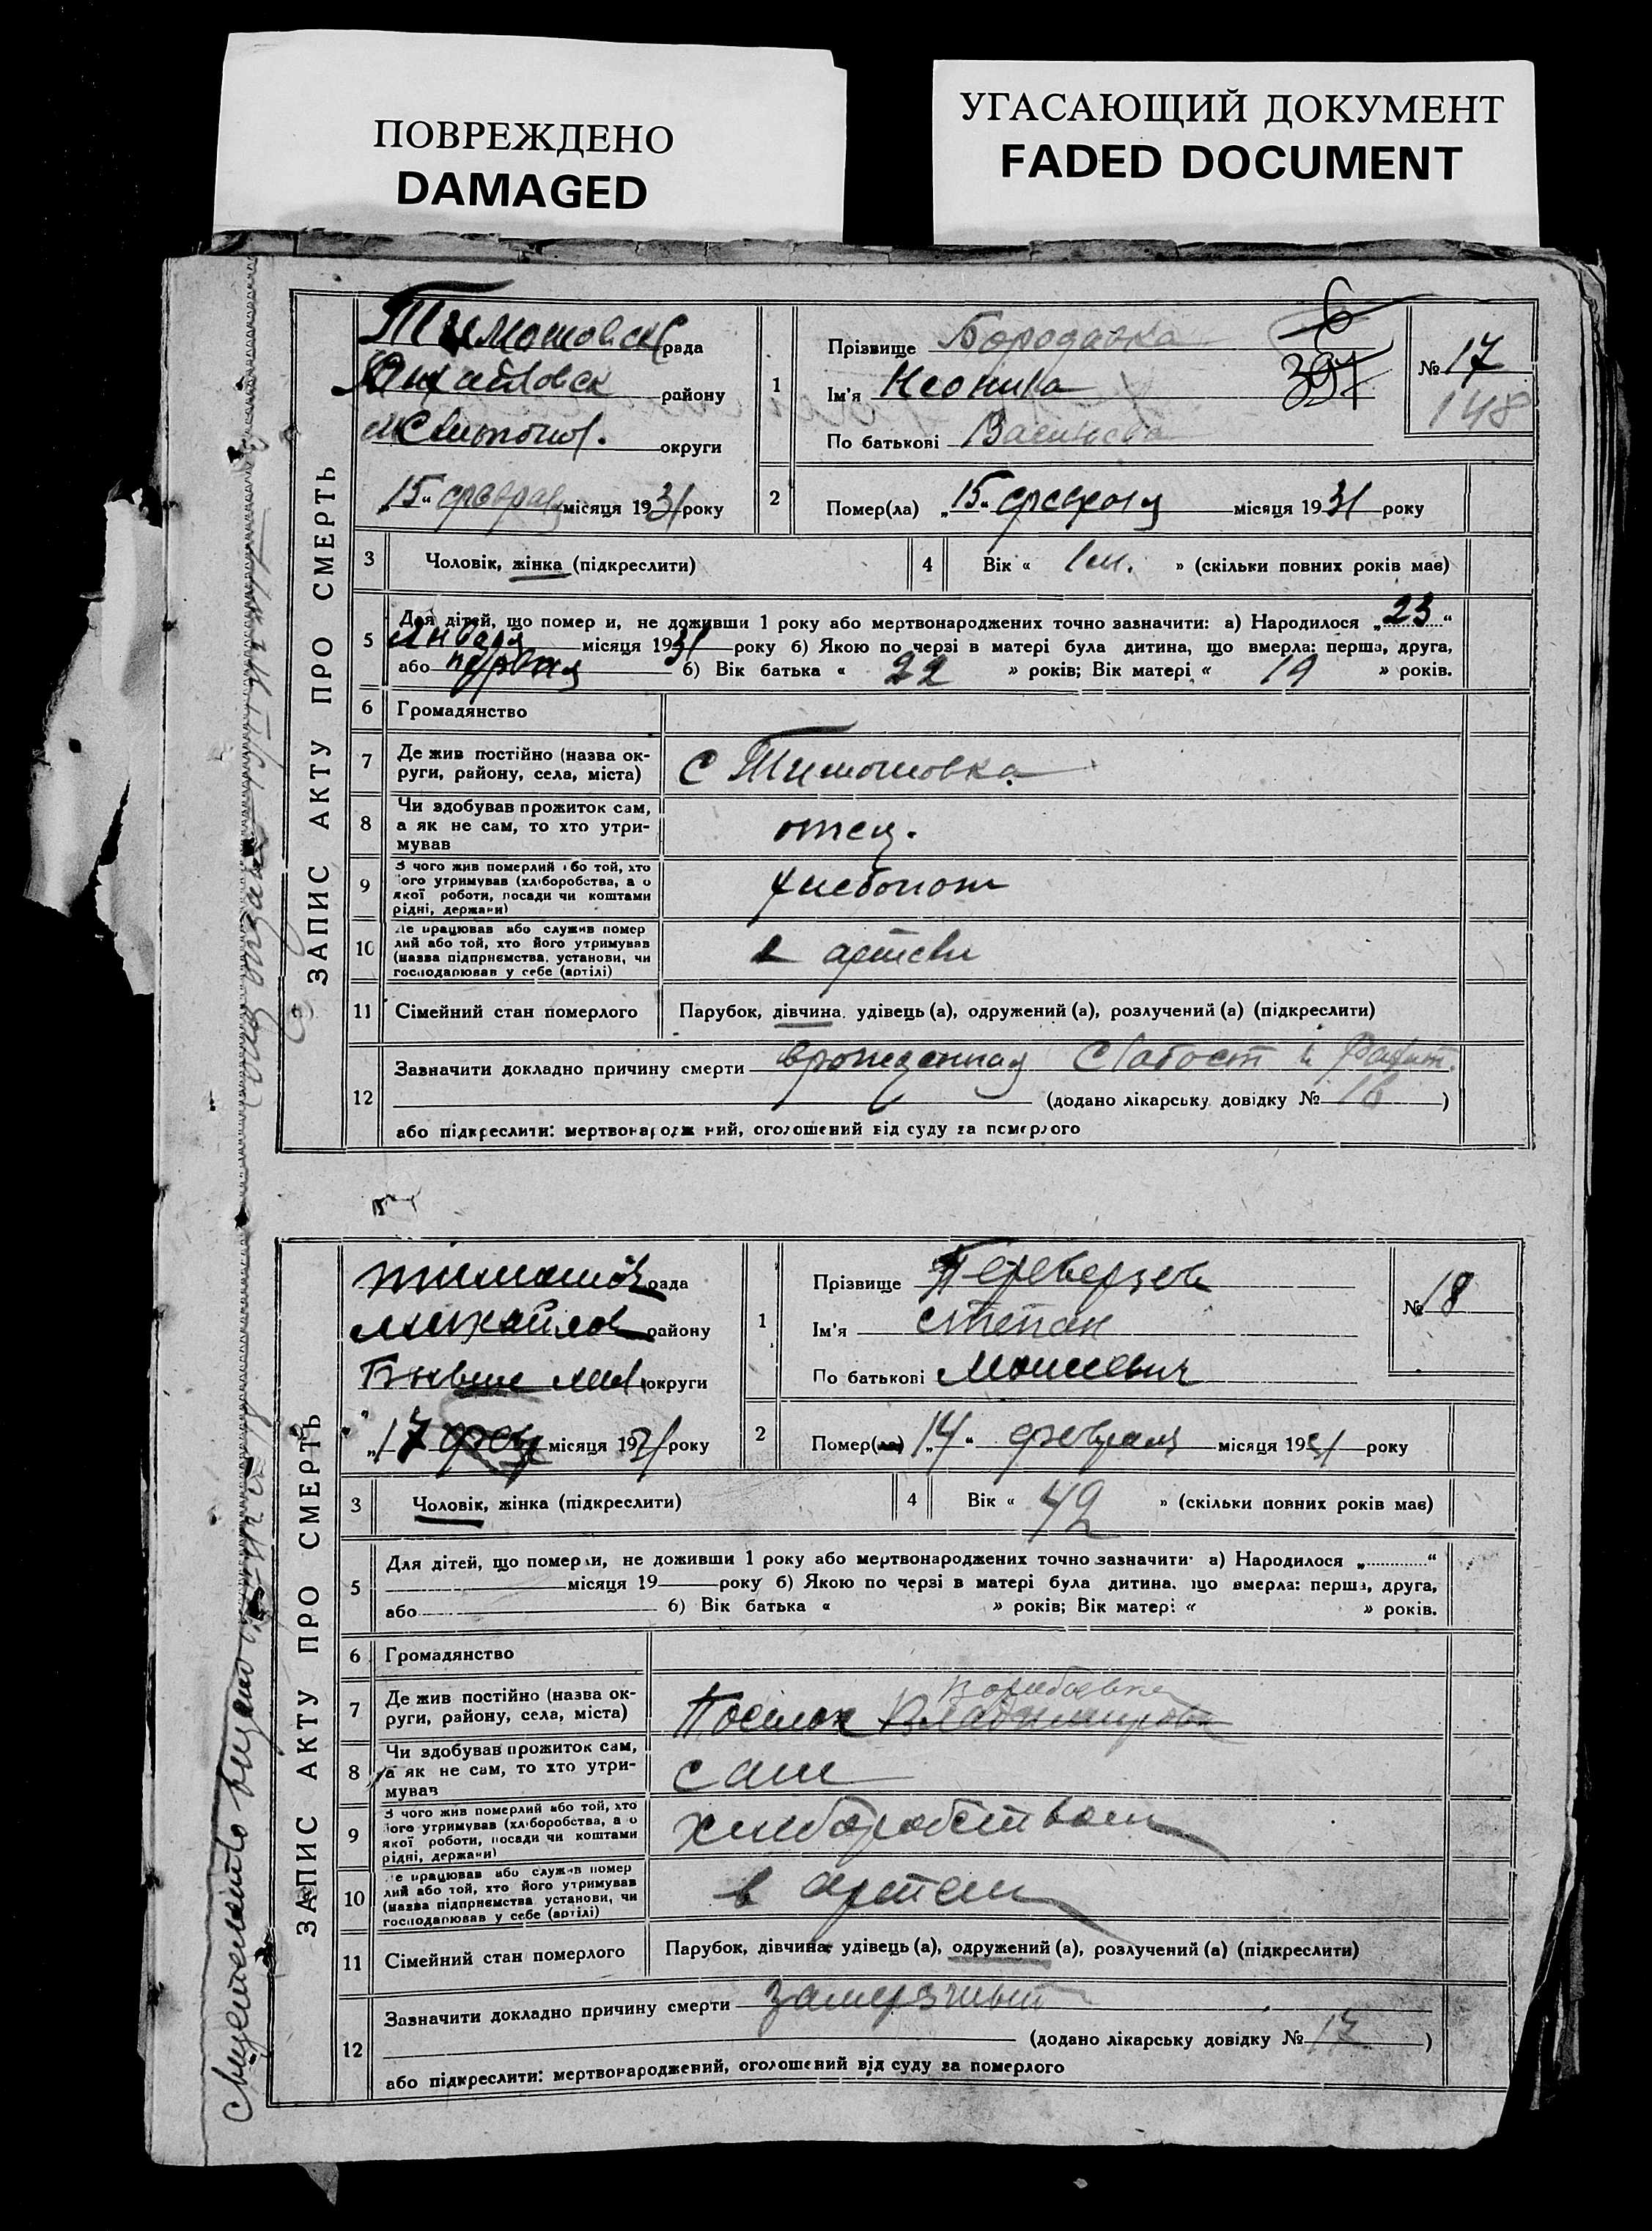 ПОВРЕЖДЕНО
DAMAGED
УГАСАЮЩИЙ ДОКУМЕНТ
FADED DOCUMENT
ЗАПИС АКТУ ПРО СМЕРТЬ
Тимошовск рада
Михайловск району
Мелитопол. округи
„15“ февраля місяця 1931 року
1
Прізвище Бородавка
Ім'я Неонила
По батькові Васильева
6
397
№ 17
148
2
Помер(ла) „15“ февраля місяця 1931 року
3 Чоловік, жінка (підкреслити)
4 Вік « 1 м. » (скільки повних років має)
5 Для дітей, що помер и, не доживши 1 року або мертвонароджених точно зазначити: а) Народилося „23“
Января місяця 1931 року б) Якою по черзі в матері була дитина, що вмерла: перша, друга,
або первая б) Вік батька « 22 » років; Вік матері « 19 » років.
6 Громадянство
7 Де жив постійно (назва ок-
руги, району, села, міста) с Тимошовка
8 Чи здобував прожиток сам,
а як не сам, то хто утри-
мував отец.
9 З чого жив померлий або той, хто
його утримував (хліборобства, а о
якої роботи, посади чи коштами
рідні, держави) хлебопаш
10 Де працював або служив помер
лий або той, хто його утримував
(назва підприємства, установи, чи
господарював у себе (артілі) в артели
11 Сімейний стан померлого Парубок, дівчина, удівець (а), одружений (а), розлучений (а) (підкреслити)
12 Зазначити докладно причину смерти врожденная слабост и Рахит.
(додано лікарську довідку № 16 )
або підкреслити: мертвонароджений, оголошений від суду за померлого
ЗАПИС АКТУ ПРО СМЕРТЬ
тимошов рада
михайлов району
Бивше мел округи
„17 фев місяця 1931 року
1
Прізвище Переверзев
Ім'я степан
По батькові Моисеевич
№ 18
2
Помер(ла) „14“ февраля місяця 1931 року
3 Чоловік, жінка (підкреслити)
4 Вік « 49 » (скільки повних років має)
5 Для дітей, що померли, не доживши 1 року або мертвонароджених точно зазначити: а) Народилося „ “
місяця 19 року б) Якою по черзі в матері була дитина, що вмерла: перша, друга,
або б) Вік батька « » років; Вік матері « » років.
6 Громадянство
7 Де жив постійно (назва ок-
руги, району, села, міста) Поселок Владимировка
8 Чи здобував прожиток сам,
а як не сам, то хто утри-
мував сам
9 З чого жив померлий або той, хто
його утримував (хліборобства, а о
якої роботи, посади чи коштами
рідні, держави) хлеборобством
10 Де працював або служив помер
лий або той, хто його утримував
(назва підприємства, установи, чи
господарював у себе (артілі) в артели
11 Сімейний стан померлого Парубок, дівчина, удівець (а), одружений (а), розлучений (а) (підкреслити)
12 Зазначити докладно причину смерти замерзший
(додано лікарську довідку № 17 )
або підкреслити: мертвонароджений, оголошений від суду за померлого